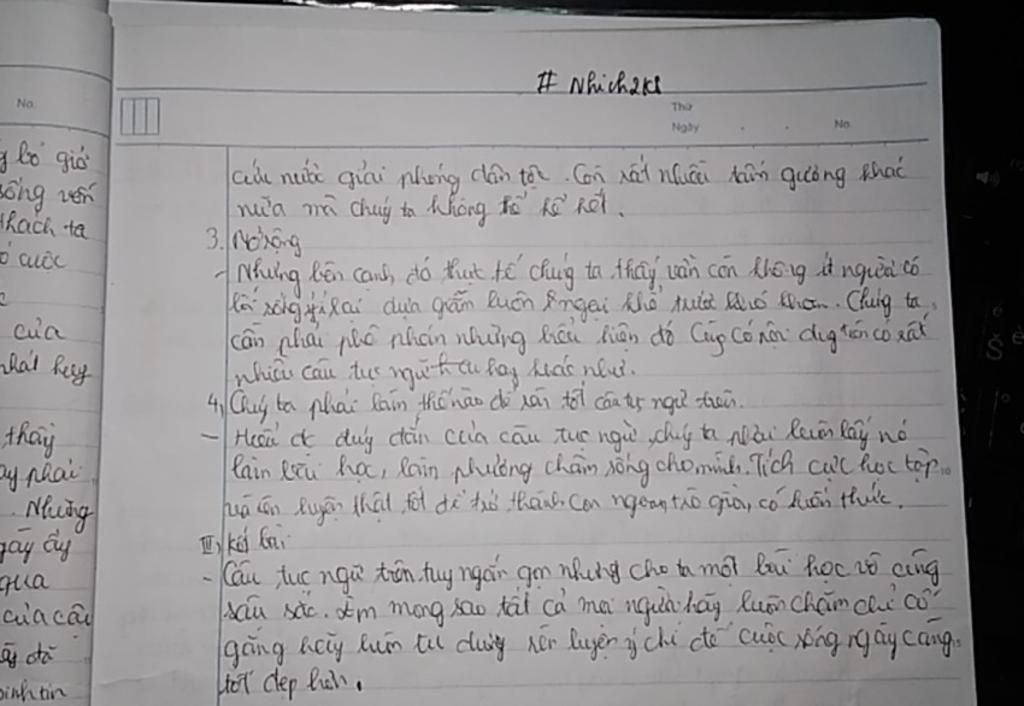 # Nhich2K8
Thứ
No.
Ngày . . No.
cứu nước giải phóng dân tộc. Còn rất nhiều tấm gương khác
nữa mà chúg ta không thể kể hết.
3. Mở rộng
- Nhưng bên cạnh đó thực tế chúg ta thấy vẫn còn không ít người có
lối sống ỷ lại dựa dẫm luôn ngại khổ, trước khó khăn. Chúg ta
cần phải phê phán những biểu hiện đó Cũg có nội dug trên có rất
nhiều câu tục ngữ hay khác như.
4, Chúg ta phải làm thế nào để rèn tốt câu tục ngữ trên.
- Hiểu đc đúg đắn của câu tục ngữ, chúg ta phải luôn lấy nó
làm bài học, làm phương châm sống cho mình. Tích cực học tập
và rèn luyện thật tốt để trở thành con ngoan trò giỏi, có kiến thức.
III, Kết bài
- Câu tục ngữ trên tuy ngắn gọn nhưng cho ta một bài học vô cùng
sâu sắc. Em mong sao tất cả mọi người hãy luôn chăm chỉ cố
gắng hãy luôn tu dưỡng rèn luyện ý chí để cuộc sống ngày càng
tốt đẹp hơn.
bỏ giở
sống vốn
thách ta
cuộc
của
nhất hay
thấy
phải
. Những
gày ấy
qua
của cậu
đã
binh tin